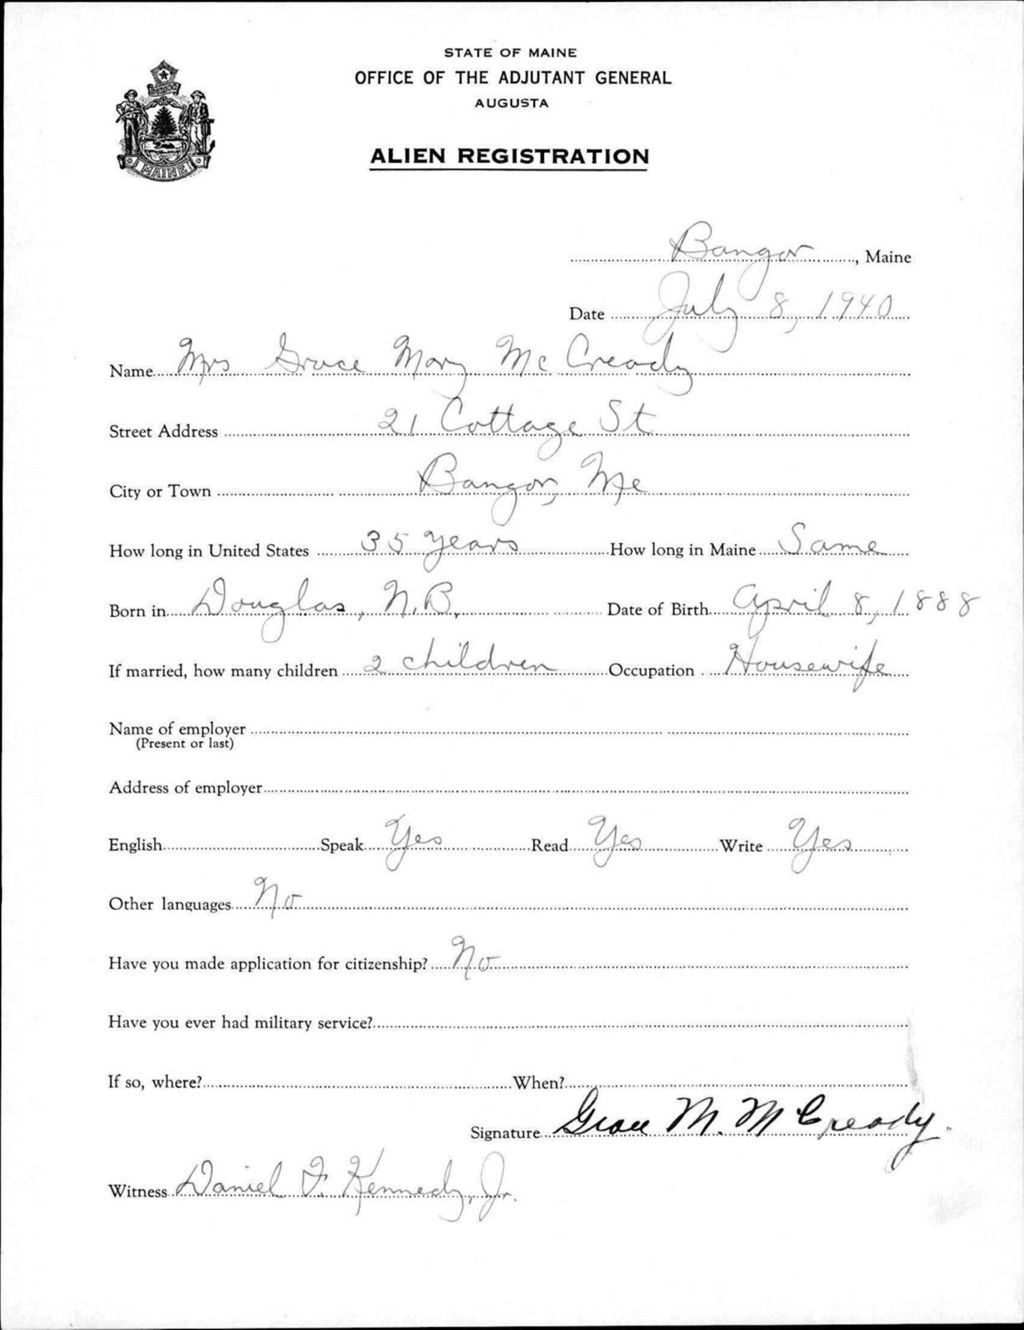 STATE OF MAINE
OFFICE OF THE ADJUTANT GENERAL
AUGUSTA
ALIEN REGISTRATION
MAINE
Bangor, Maine
Date July 8, 1940
Name Mrs Grace Mary McCready
Street Address 21 Cottage St
City or Town Bangor, Me
How long in United States 35 years How long in Maine Same
Born in Douglas, N.B. Date of Birth April 8, 1888
If married, how many children 2 children Occupation Housewife
Name of employer
(Present or last)
Address of employer
English Speak Yes Read Yes Write Yes
Other languages No
Have you made application for citizenship? No
Have you ever had military service?
If so, where? When?
Signature Grace M. McCready
Witness Daniel F. Kennedy, Jr.